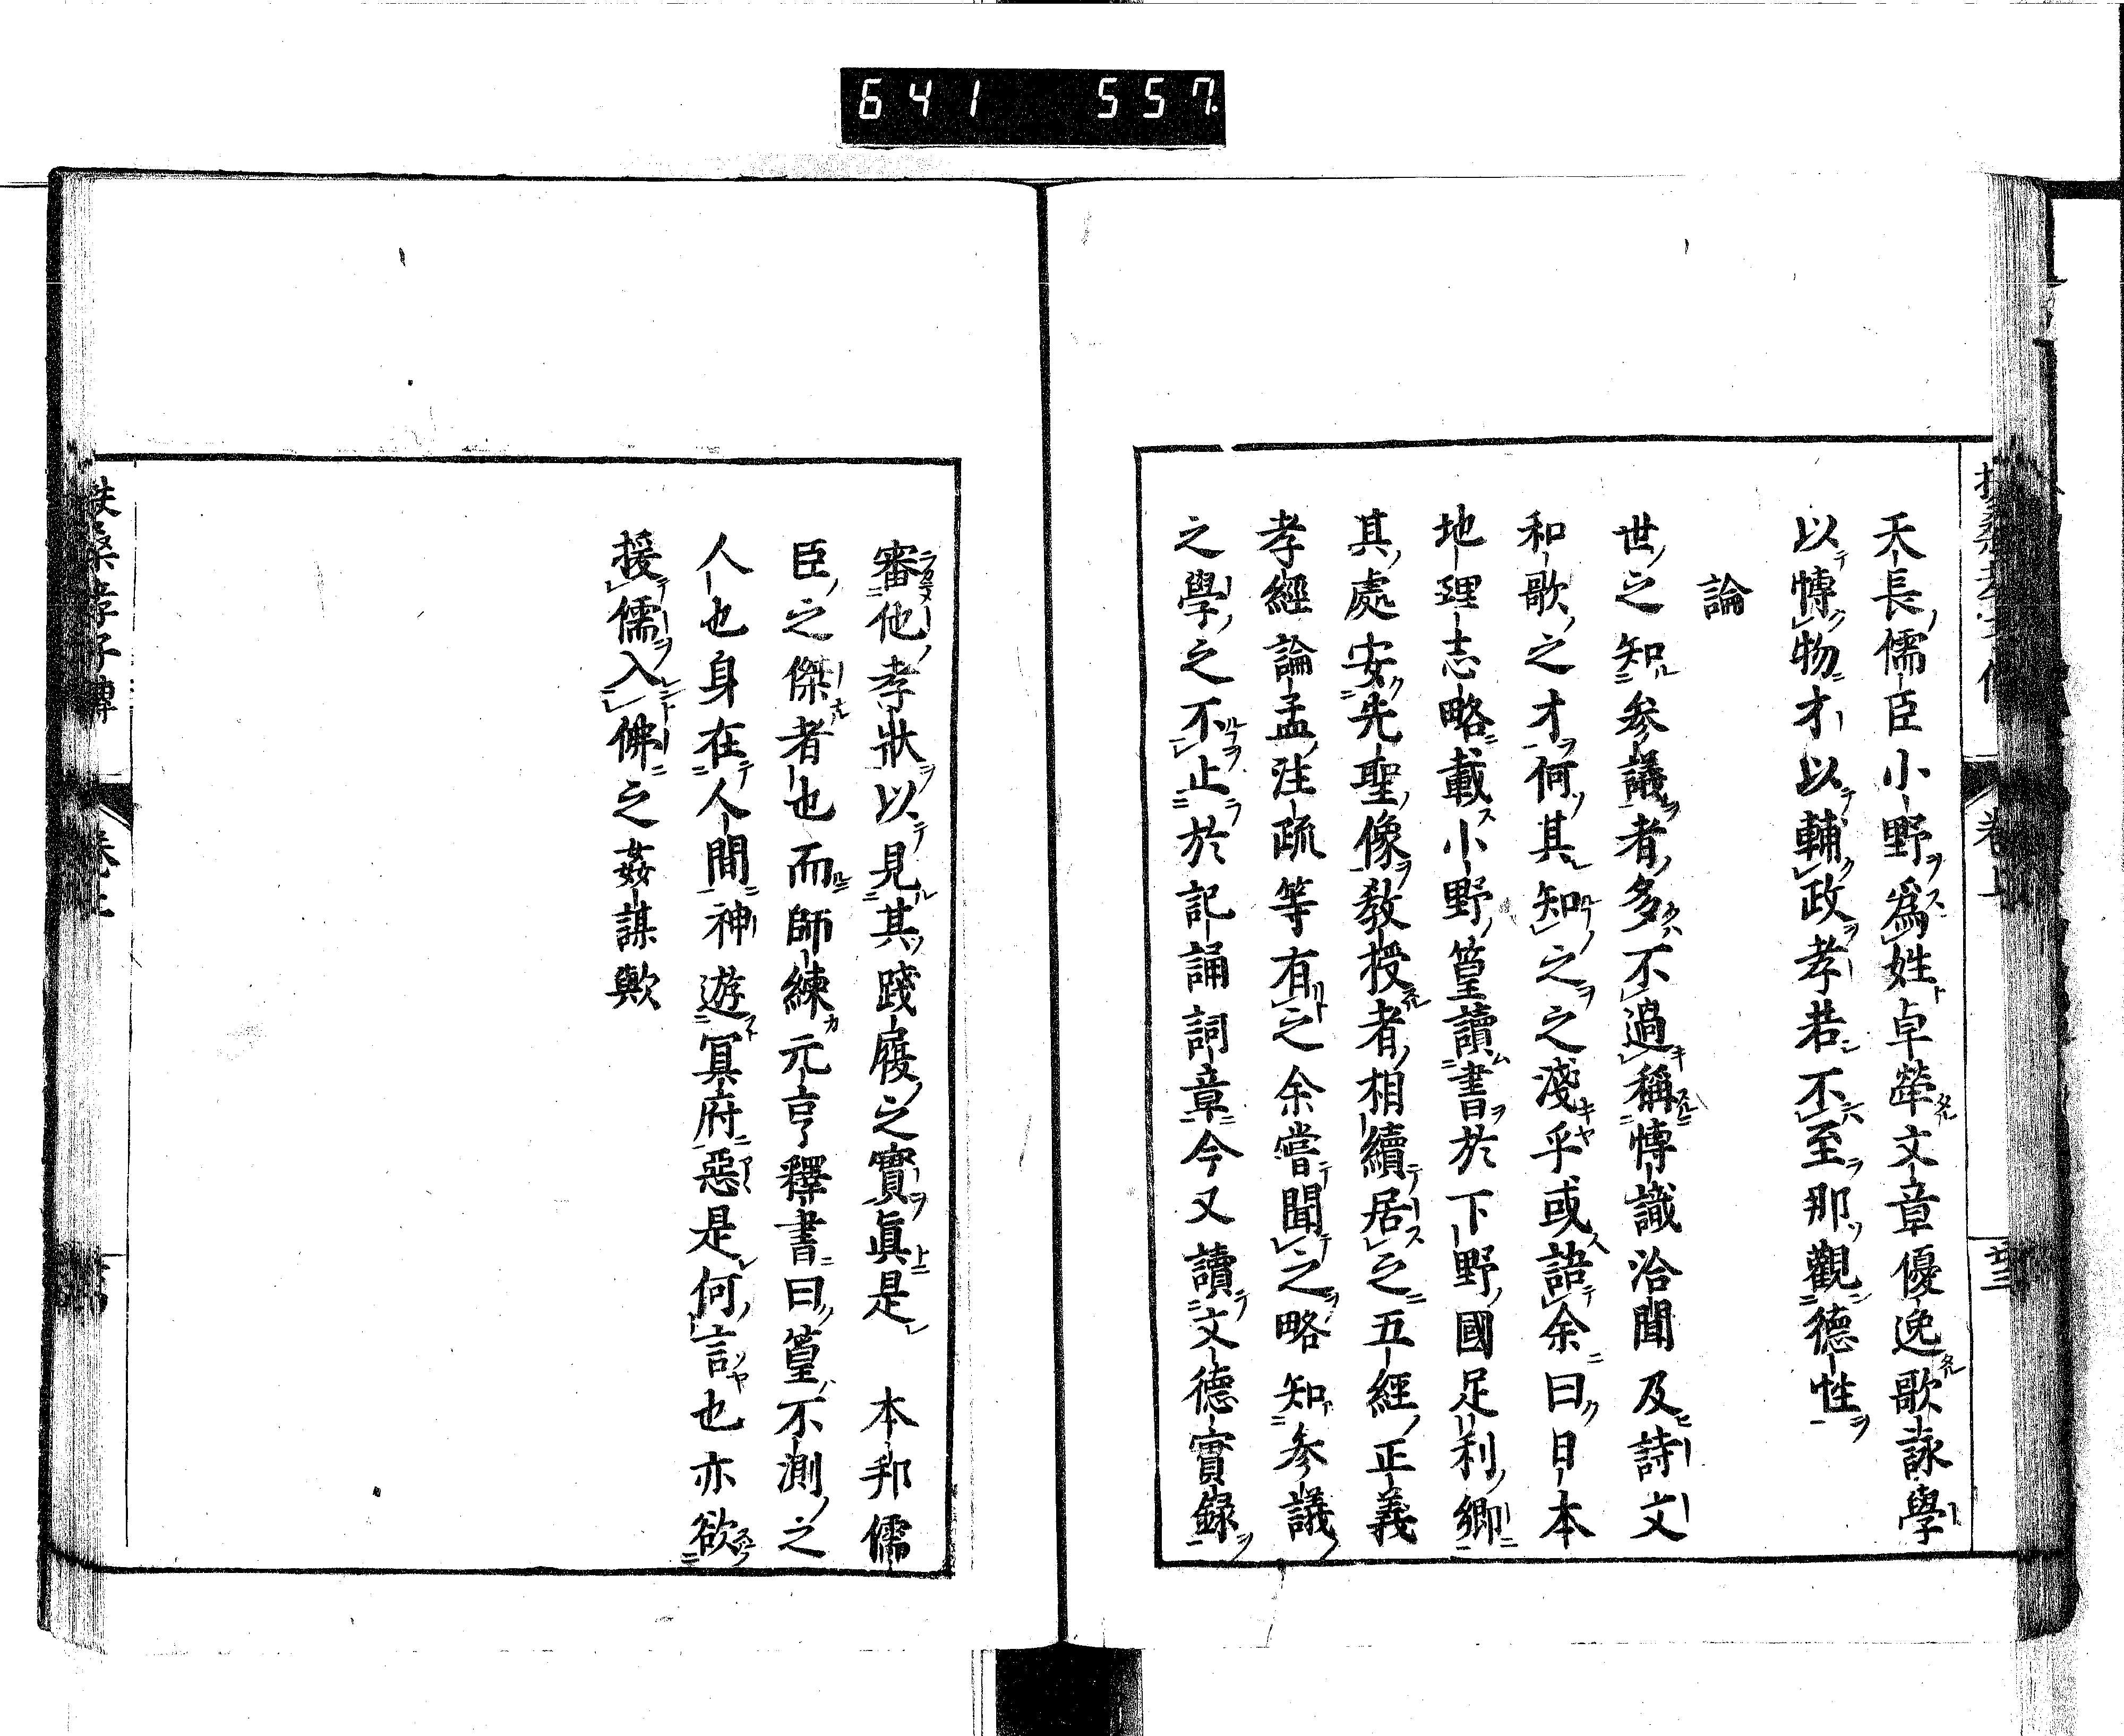 641 557
天長儒臣小野爲姓卓犖文章優逸歌詠學
以博物才以輔政孝若不至那觀德性
論
世之知參議者多不過稱博識洽聞及詩文
和歌之才何其知之之淺乎或語余曰日本
地理志略載小野篁讀書於下野國足利鄉
其處安先聖像教授者相續居之五經正義
孝經論孟注疏等有之余嘗聞之略知參議
之學之不止於記誦詞章今又讀文德實錄
審他孝狀以見其踐履之實眞是 本邦儒
臣之傑者也而師練元亨釋書曰篁不測之
人也身在人間神遊冥府惡是何言也亦欲
援儒入佛之姦謀歟